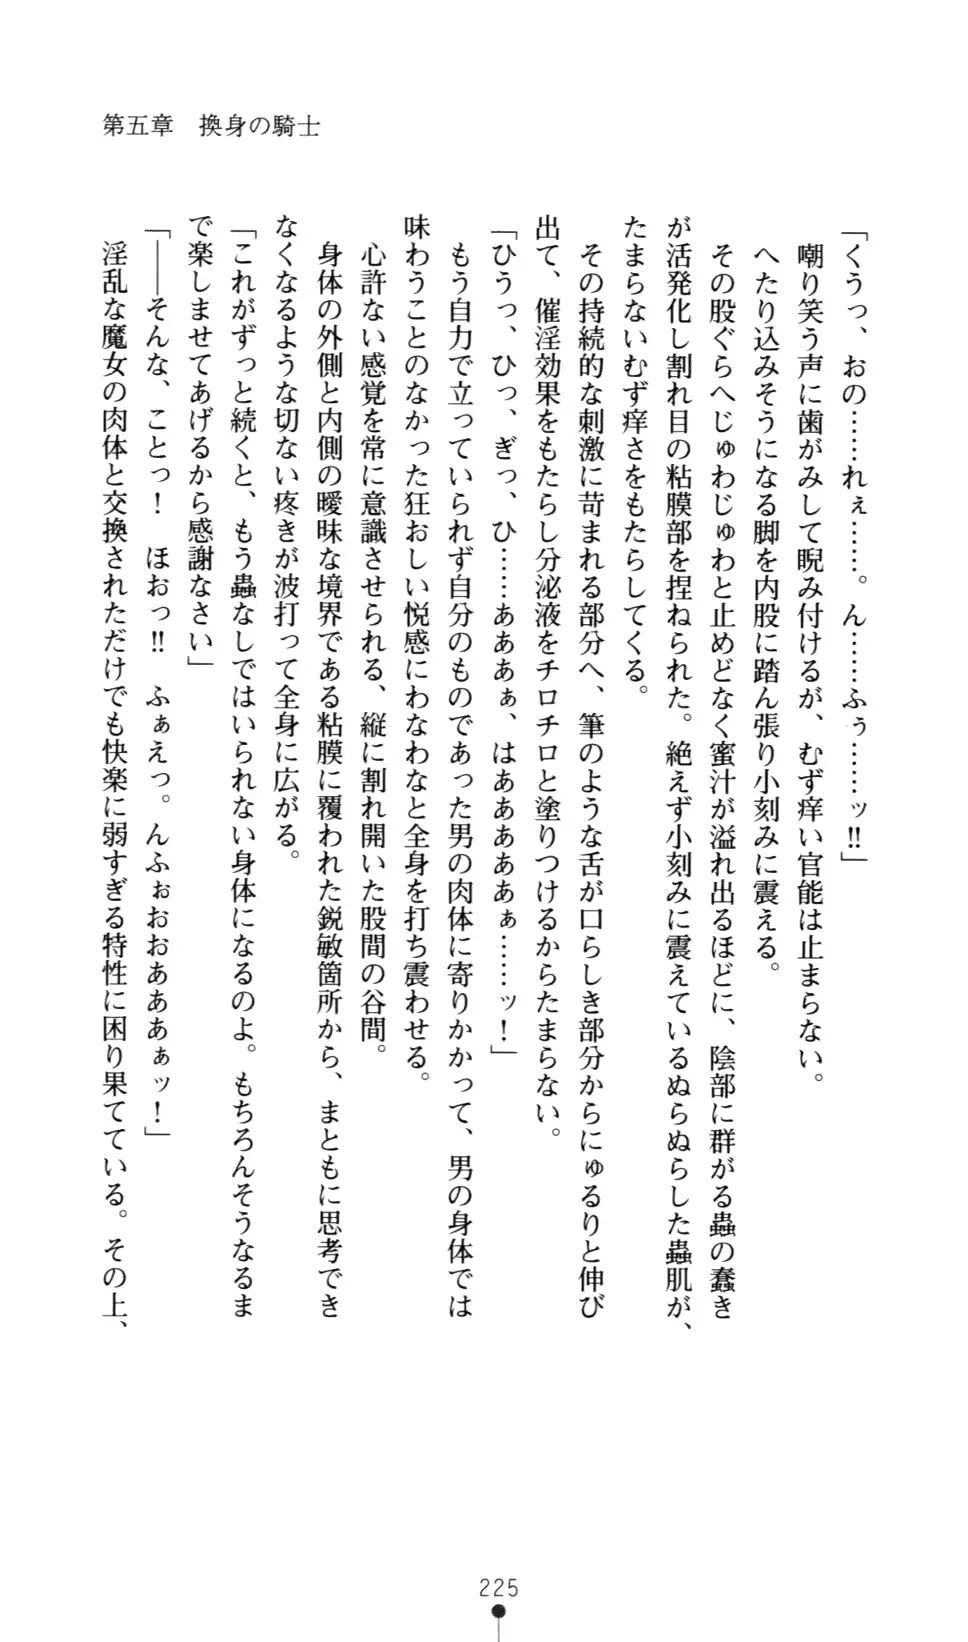 第五章　換身の騎士
「くうっ、おの……れぇ……。ん……ふぅ……ッ!!」
嘲り笑う声に歯がみして睨み付けるが、むず痒い官能は止まらない。
へたり込みそうになる脚を内股に踏ん張り小刻みに震える。
その股ぐらへじゅわじゅわと止めどなく蜜汁が溢れ出るほどに、陰部に群がる蟲の蠢き
が活発化し割れ目の粘膜部を捏ねられた。絶えず小刻みに震えているぬらぬらした蟲肌が、
たまらないむず痒さをもたらしてくる。
その持続的な刺激に苛まれる部分へ、筆のような舌が口らしき部分からにゅるりと伸び
出て、催淫効果をもたらし分泌液をチロチロと塗りつけるからたまらない。
「ひうっ、ひっ、ぎっ、ひ……あああぁ、はああああぁ……ッ！」
もう自力で立っていられず自分のものであった男の肉体に寄りかかって、男の身体では
味わうことのなかった狂おしい悦感にわなわなと全身を打ち震わせる。
心許ない感覚を常に意識させられる、縦に割れ開いた股間の谷間。
身体の外側と内側の曖昧な境界である粘膜に覆われた鋭敏箇所から、まともに思考でき
なくなるような切ない疼きが波打って全身に広がる。
「これがずっと続くと、もう蟲なしではいられない身体になるのよ。もちろんそうなるま
で楽しませてあげるから感謝なさい」
「――そんな、ことっ！　ほおっ!!　ふぁえっ。んふぉおおあああぁッ！」
淫乱な魔女の肉体と交換されただけでも快楽に弱すぎる特性に困り果てている。その上、
225